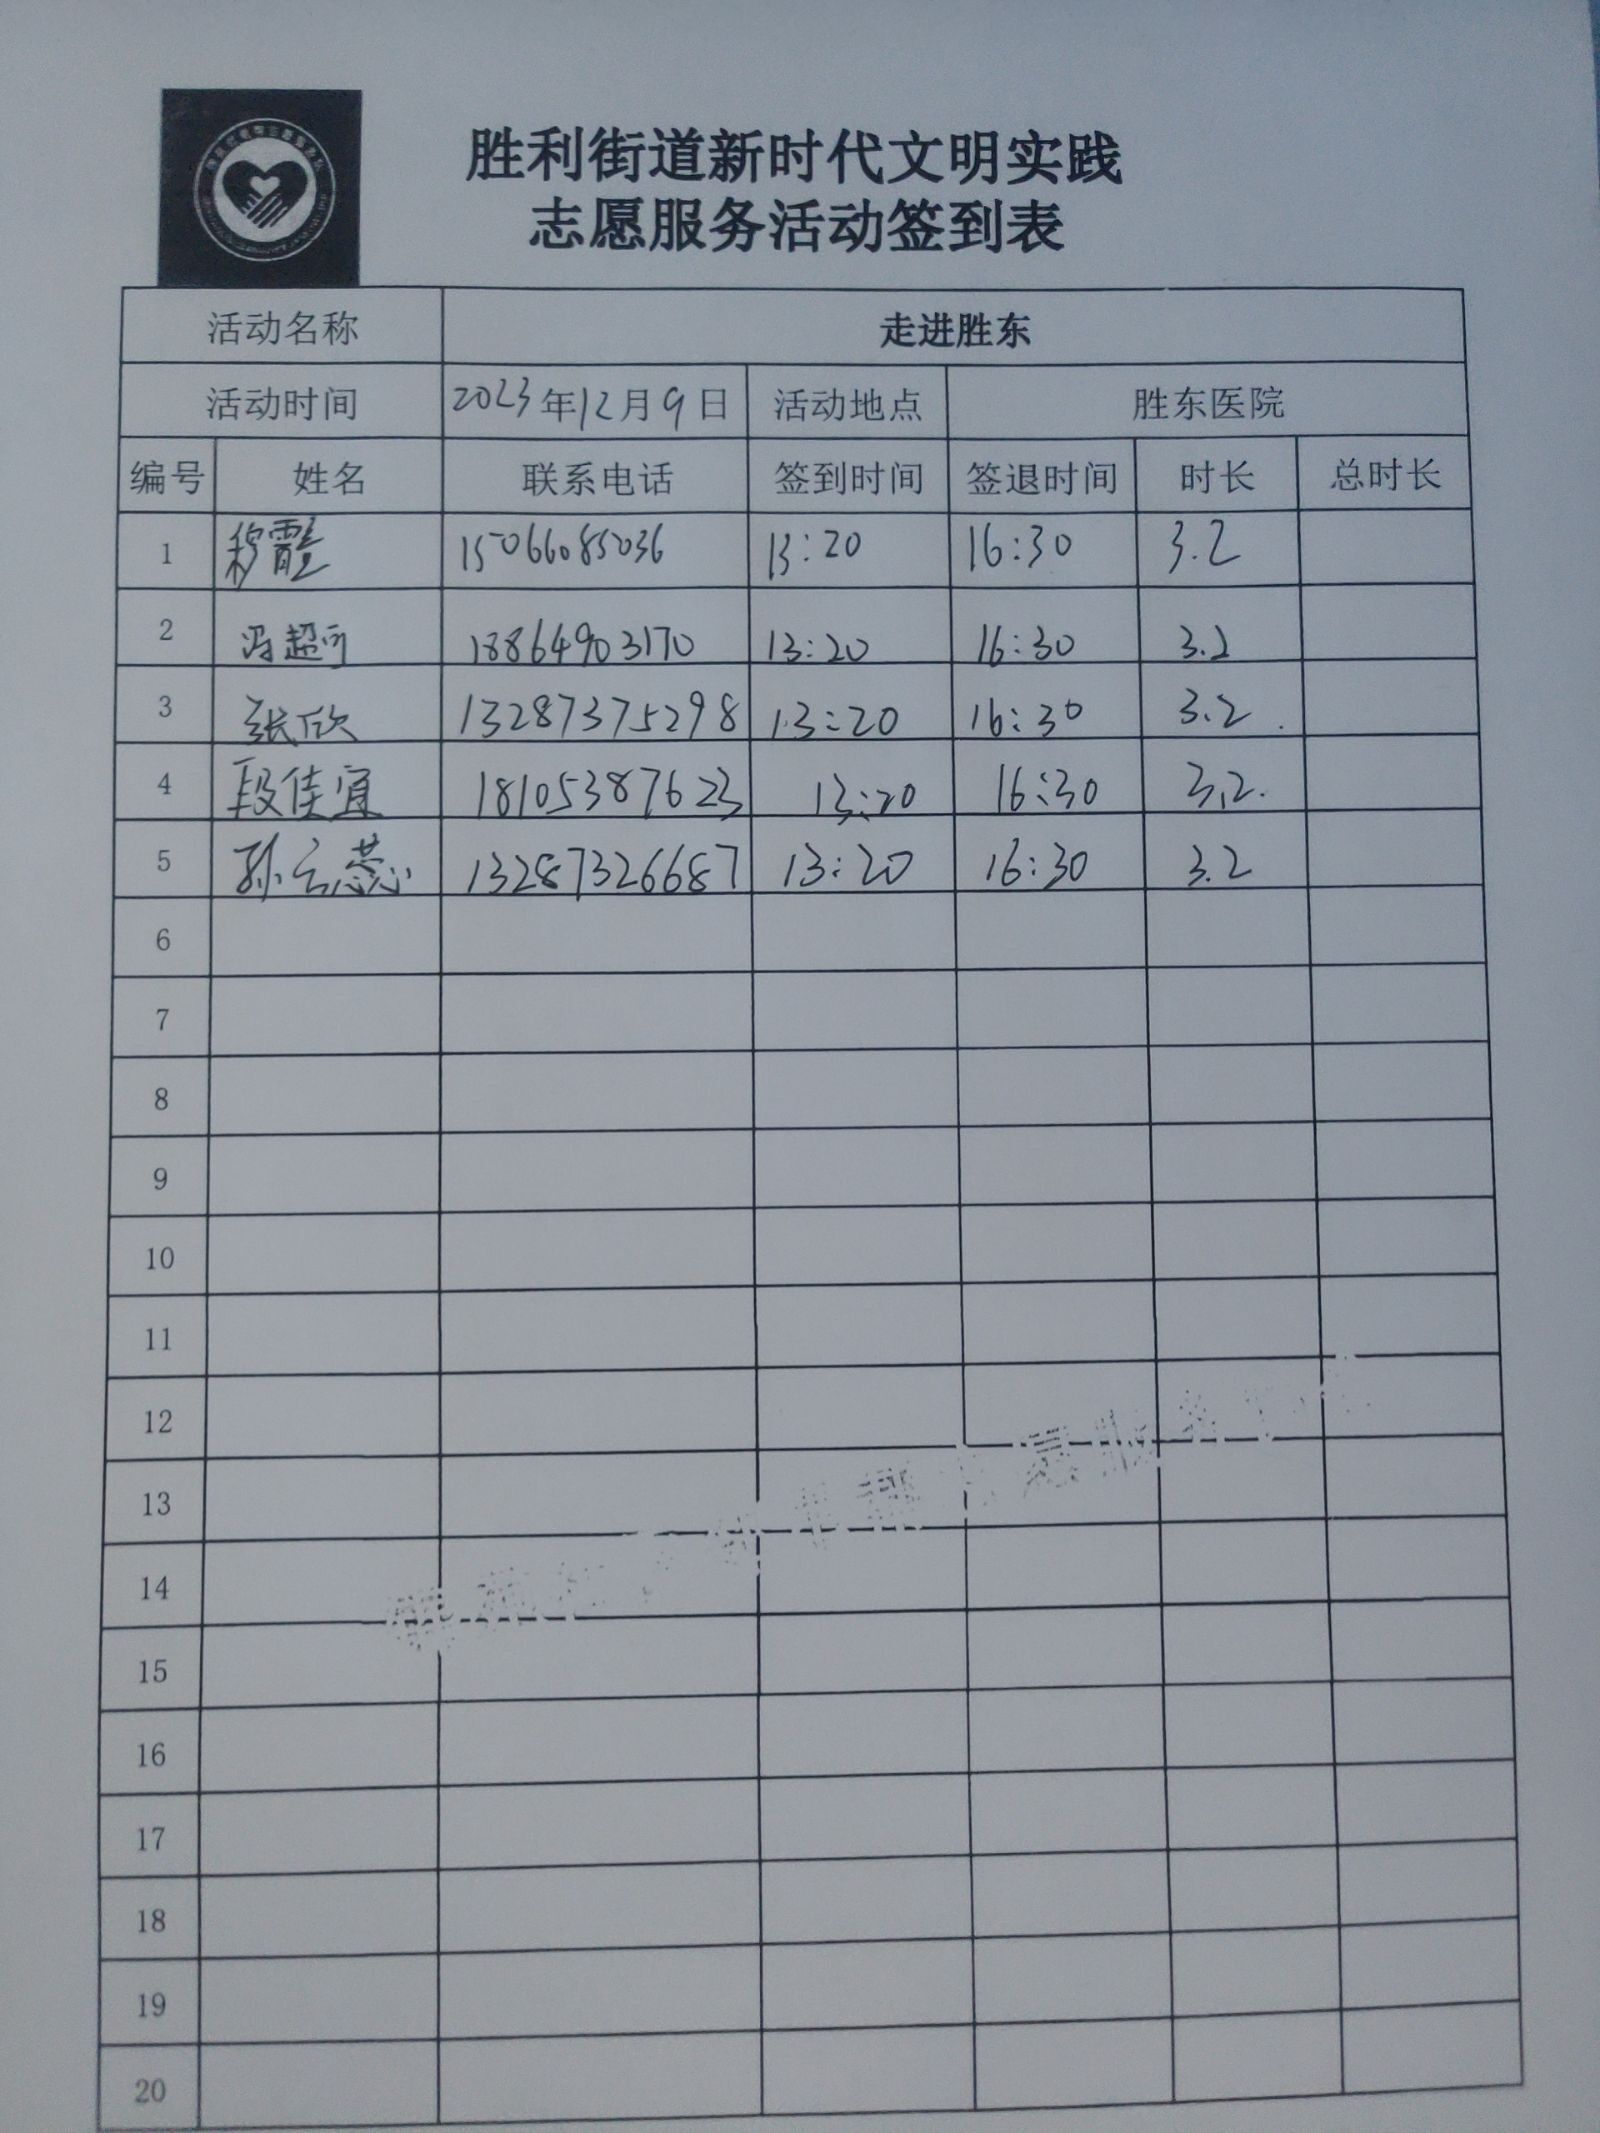 胜利街道新时代文明实践
志愿服务活动签到表
活动名称 走进胜东
活动时间 2023年12月9日 活动地点 胜东医院
编号 姓名 联系电话 签到时间 签退时间 时长 总时长
1 穆 15066085036 13:20 16:30 3.2
2 冯超 18864903170 13:20 16:30 3.2
3 张欣 13287375298 13:20 16:30 3.2
4 段佳宜 18105387623 13:20 16:30 3.2.
5 孙云蕊 13287326687 13:20 16:30 3.2
6
7
8
9
10
11
12
13
14
15
16
17
18
19
20